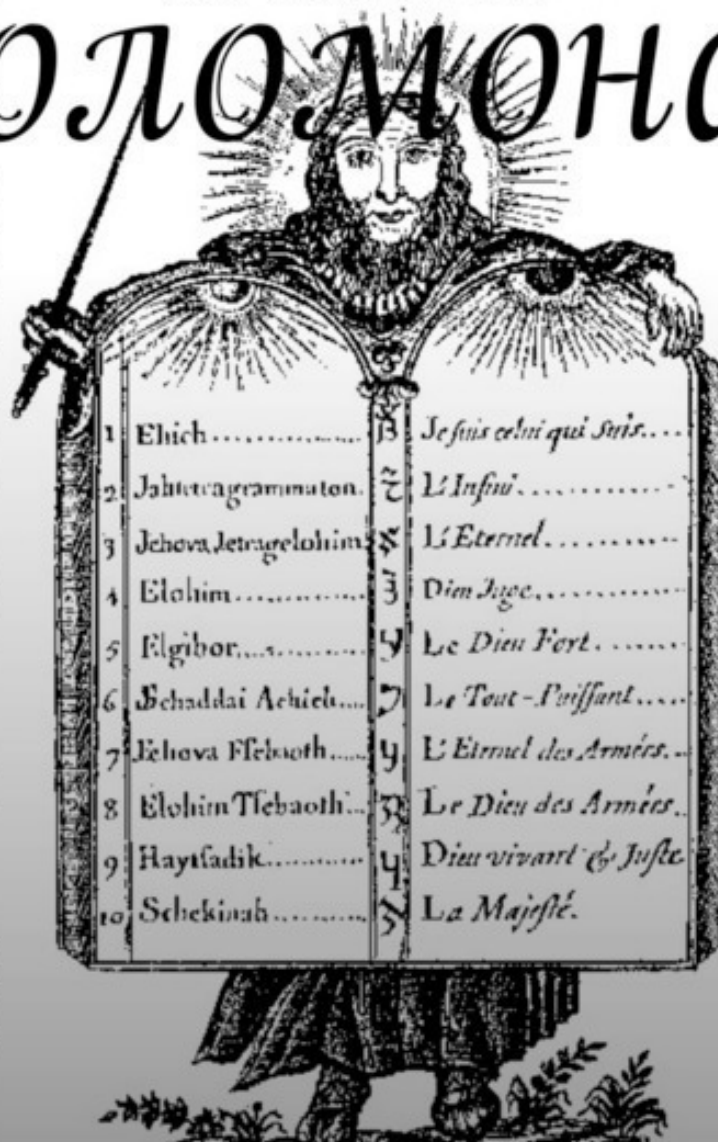 ОЛОМОНА
1 Ehieh
Je suis celui qui suis
2 Jahtetragrammaton
L'Infini
3 Jehova Jetragelohim
L'Eternel
4 Elohim
Dieu Juge
5 Elgibor
Le Dieu Fort
6 Schaddai Achieh
Le Tout-Puissant
7 Jehova Tsebaoth
L'Eternel des Armées
8 Elohim Tsebaoth
Le Dieu des Armées
9 Haytsadik
Dieu vivant & Juste
10 Schekinah
La Majesté.